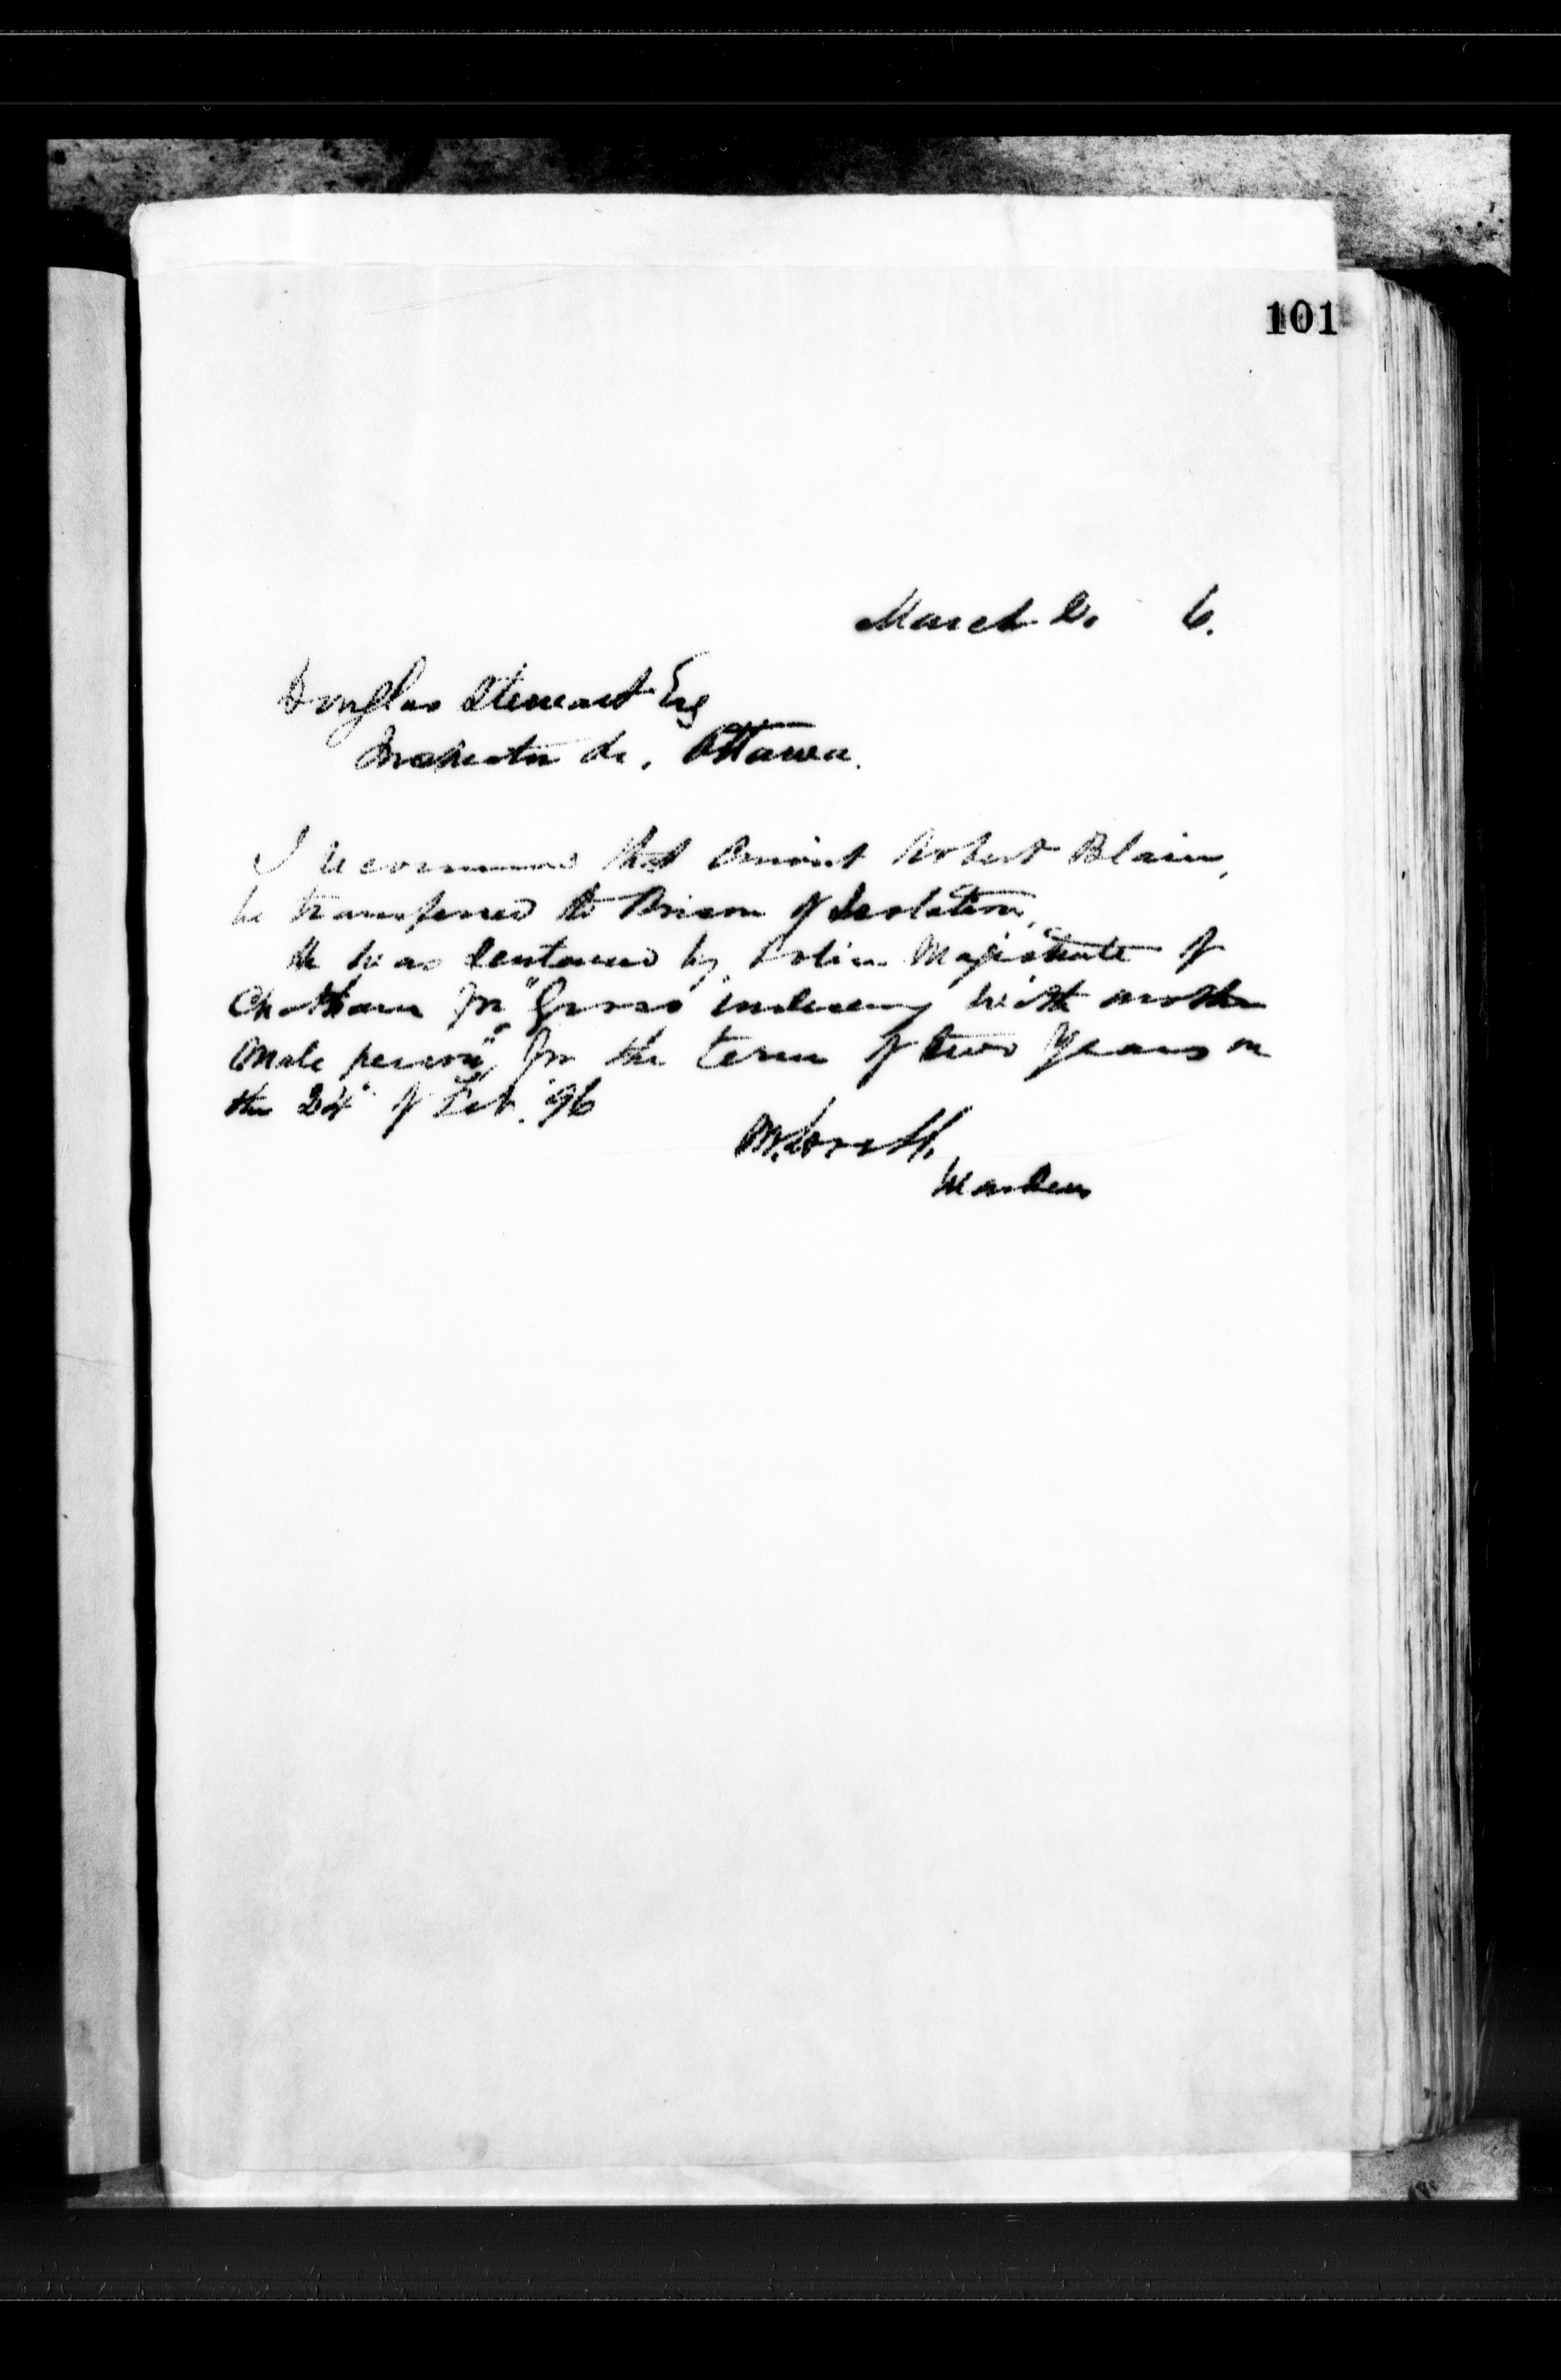 101
March 2. 6.
Douglas Stewart Esq
Inspector &c. Ottawa.
I recommend that Convict Robert Blain,
be transferred to Prison of Isolation,
He was sentenced by Police Magistrate of
Chatham for "Gross indecency with another
male person", for the term of two years on
the 24" of Feb. 96
Warden